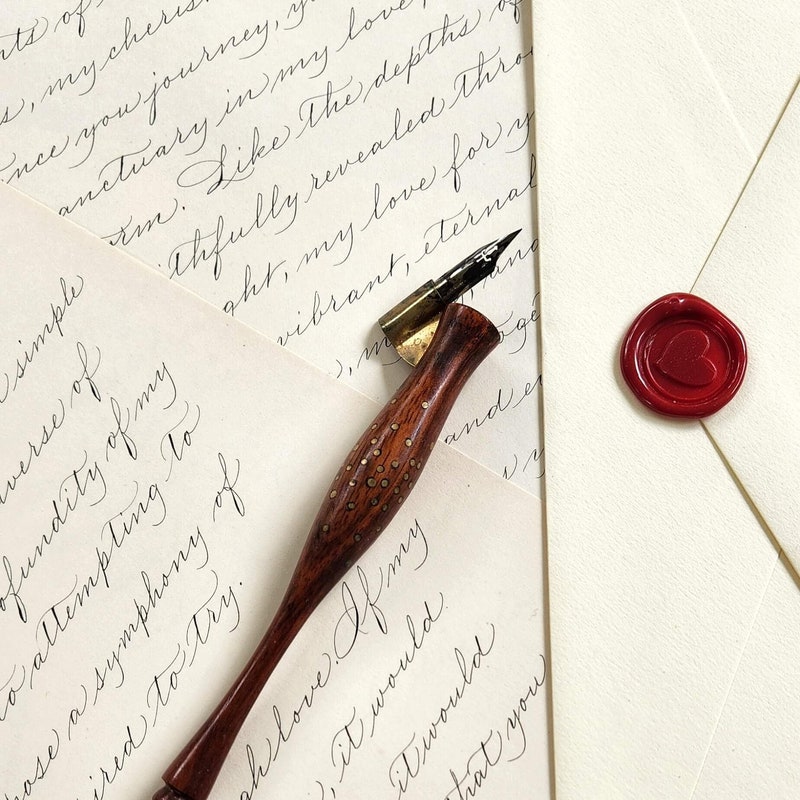 nts of
s, my cherish
ince you journey, y
anctuary in my love
rm. Like the depths of
thfully revealed thro
ght, my love for y
vibrant, eternal
and
oge
and e
simple
verse of
ofundity of my
to attempting to
pose a symphony of
ired to try.
gh love. If my
, it would
it would
that you